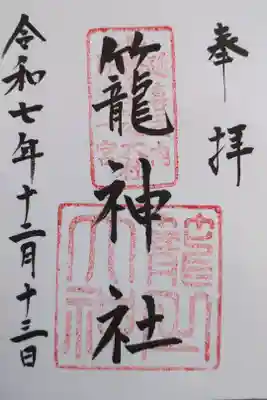 奉拝
籠神社
令和七年十二月十三日